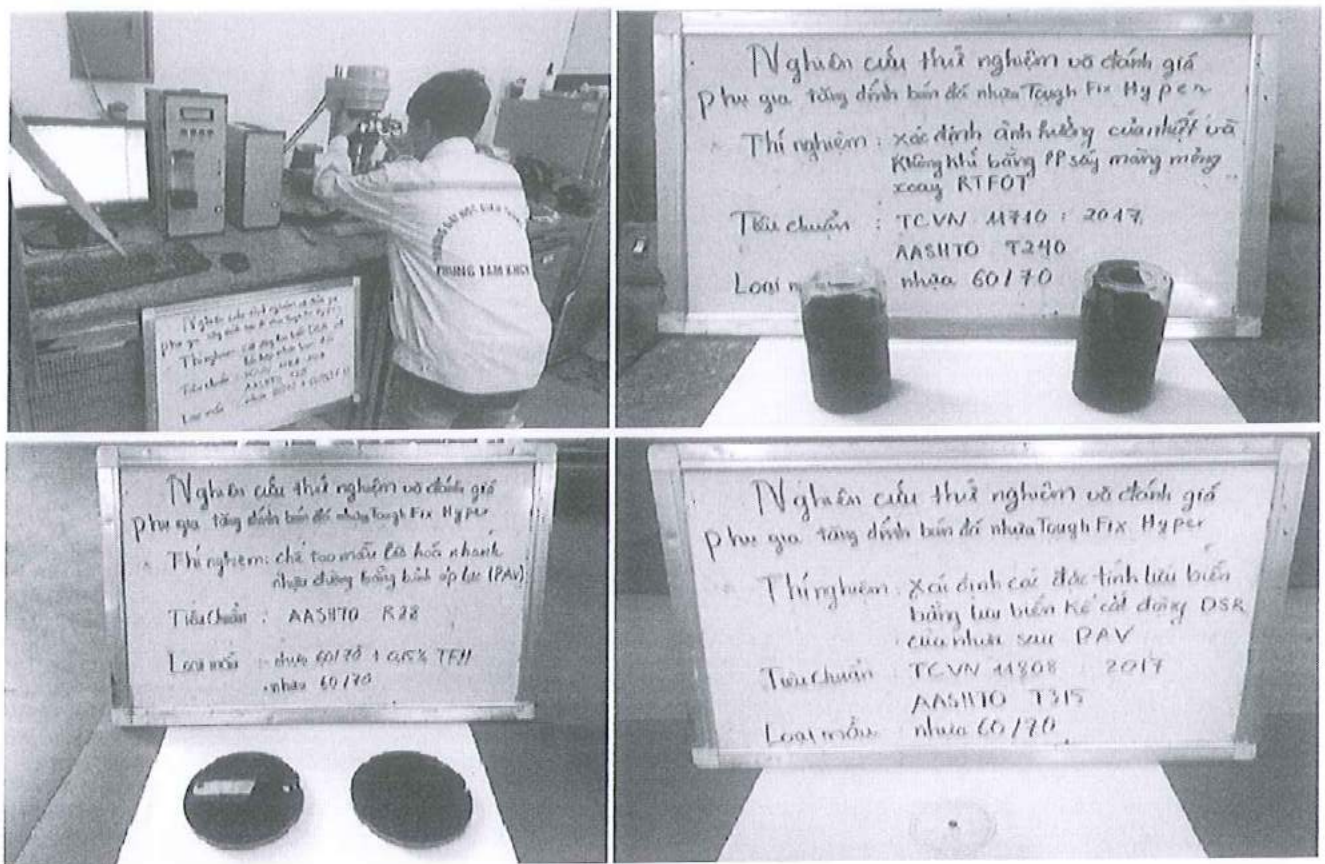 TRUNG TÂM KHCN
Nghiên cứu thử nghiệm và đánh giá
phụ gia tăng dính bám đá nhựa Tough Fix Hyper
Thí nghiệm:
Tiêu chuẩn:
Loại mẫu: nhựa 60/70
Nghiên cứu thử nghiệm và đánh giá
phụ gia tăng dính bám đá nhựa Tough Fix Hyper
Thí nghiệm: xác định ảnh hưởng của nhiệt và
không khí bằng PP sấy màng mỏng
xoay RTFOT
Tiêu chuẩn: TCVN 11710 : 2017,
AASHTO T240
Loại nhựa 60/70
Nghiên cứu thử nghiệm và đánh giá
phụ gia tăng dính bám đá nhựa Tough Fix Hyper
Thí nghiệm: chế tạo mẫu lão hoá nhanh
nhựa đường bằng bình áp lực (PAV)
Tiêu chuẩn: AASHTO R28
Loại mẫu: nhựa 60/70 + 0,15% TFH
nhựa 60/70
Nghiên cứu thử nghiệm và đánh giá
phụ gia tăng dính bám đá nhựa Tough Fix Hyper
Thí nghiệm: Xác định các đặc tính lưu biến
bằng lưu biến kế cắt động DSR
của nhựa sau PAV
Tiêu chuẩn: TCVN 11808 : 2017
AASHTO T315
Loại mẫu: nhựa 60/70